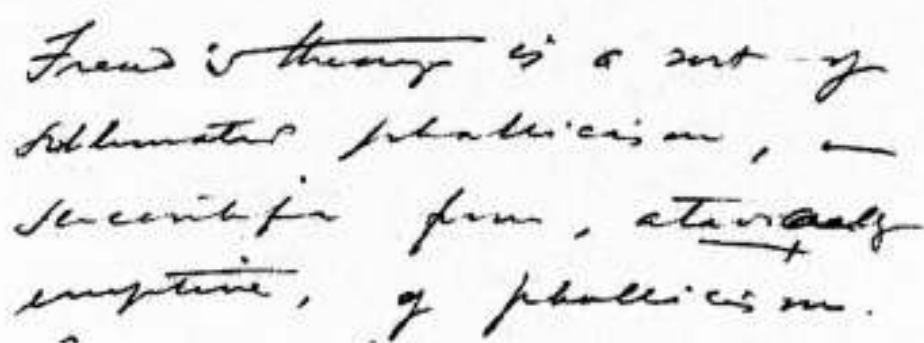 Freud's theory is a sort of
sublimated phallicism, a
scientific form, atavically
eruptive, of phallicism.